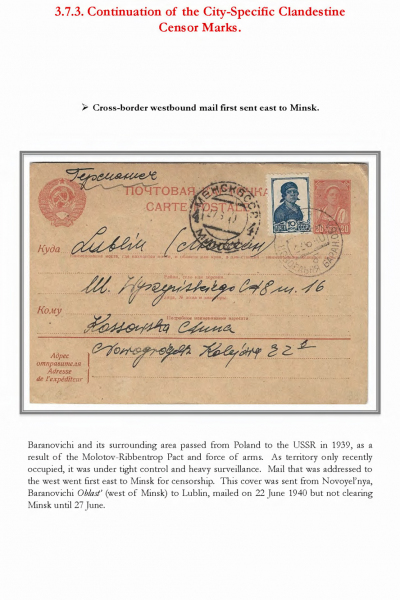 3.7.3. Continuation of the City-Specific Clandestine
Censor Marks.
➢ Cross-border westbound mail first sent east to Minsk.
Германия
ПОЧТОВАЯ
CARTE POSTALE
Куда
Lublin
Кому
ul.
m. 16
Kossowska Anna
Nowogródek Kolejowa
Адрес
отправителя
Adresse
de l'expéditeur
Baranovichi and its surrounding area passed from Poland to the USSR in 1939, as a
result of the Molotov-Ribbentrop Pact and force of arms. As territory only recently
occupied, it was under tight control and heavy surveillance. Mail that was addressed to
the west went first east to Minsk for censorship. This cover was sent from Novoyel'nya,
Baranovichi Oblast' (west of Minsk) to Lublin, mailed on 22 June 1940 but not clearing
Minsk until 27 June.